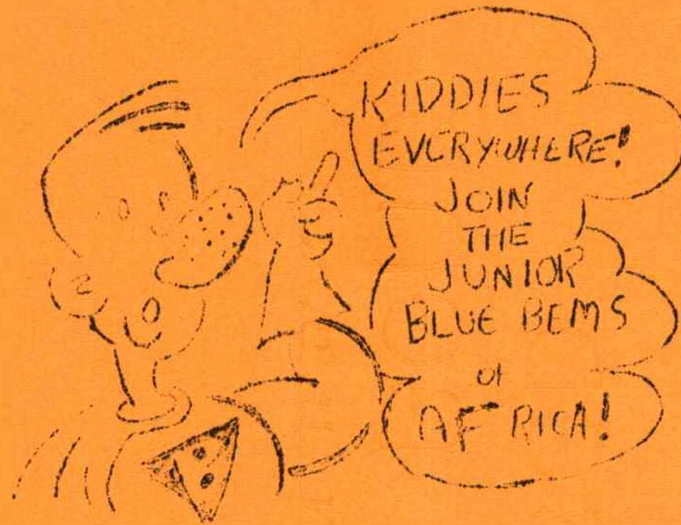 KIDDIES
EVERYWHERE!
JOIN
THE
JUNIOR
BLUE BEMS
of
AFRICA!